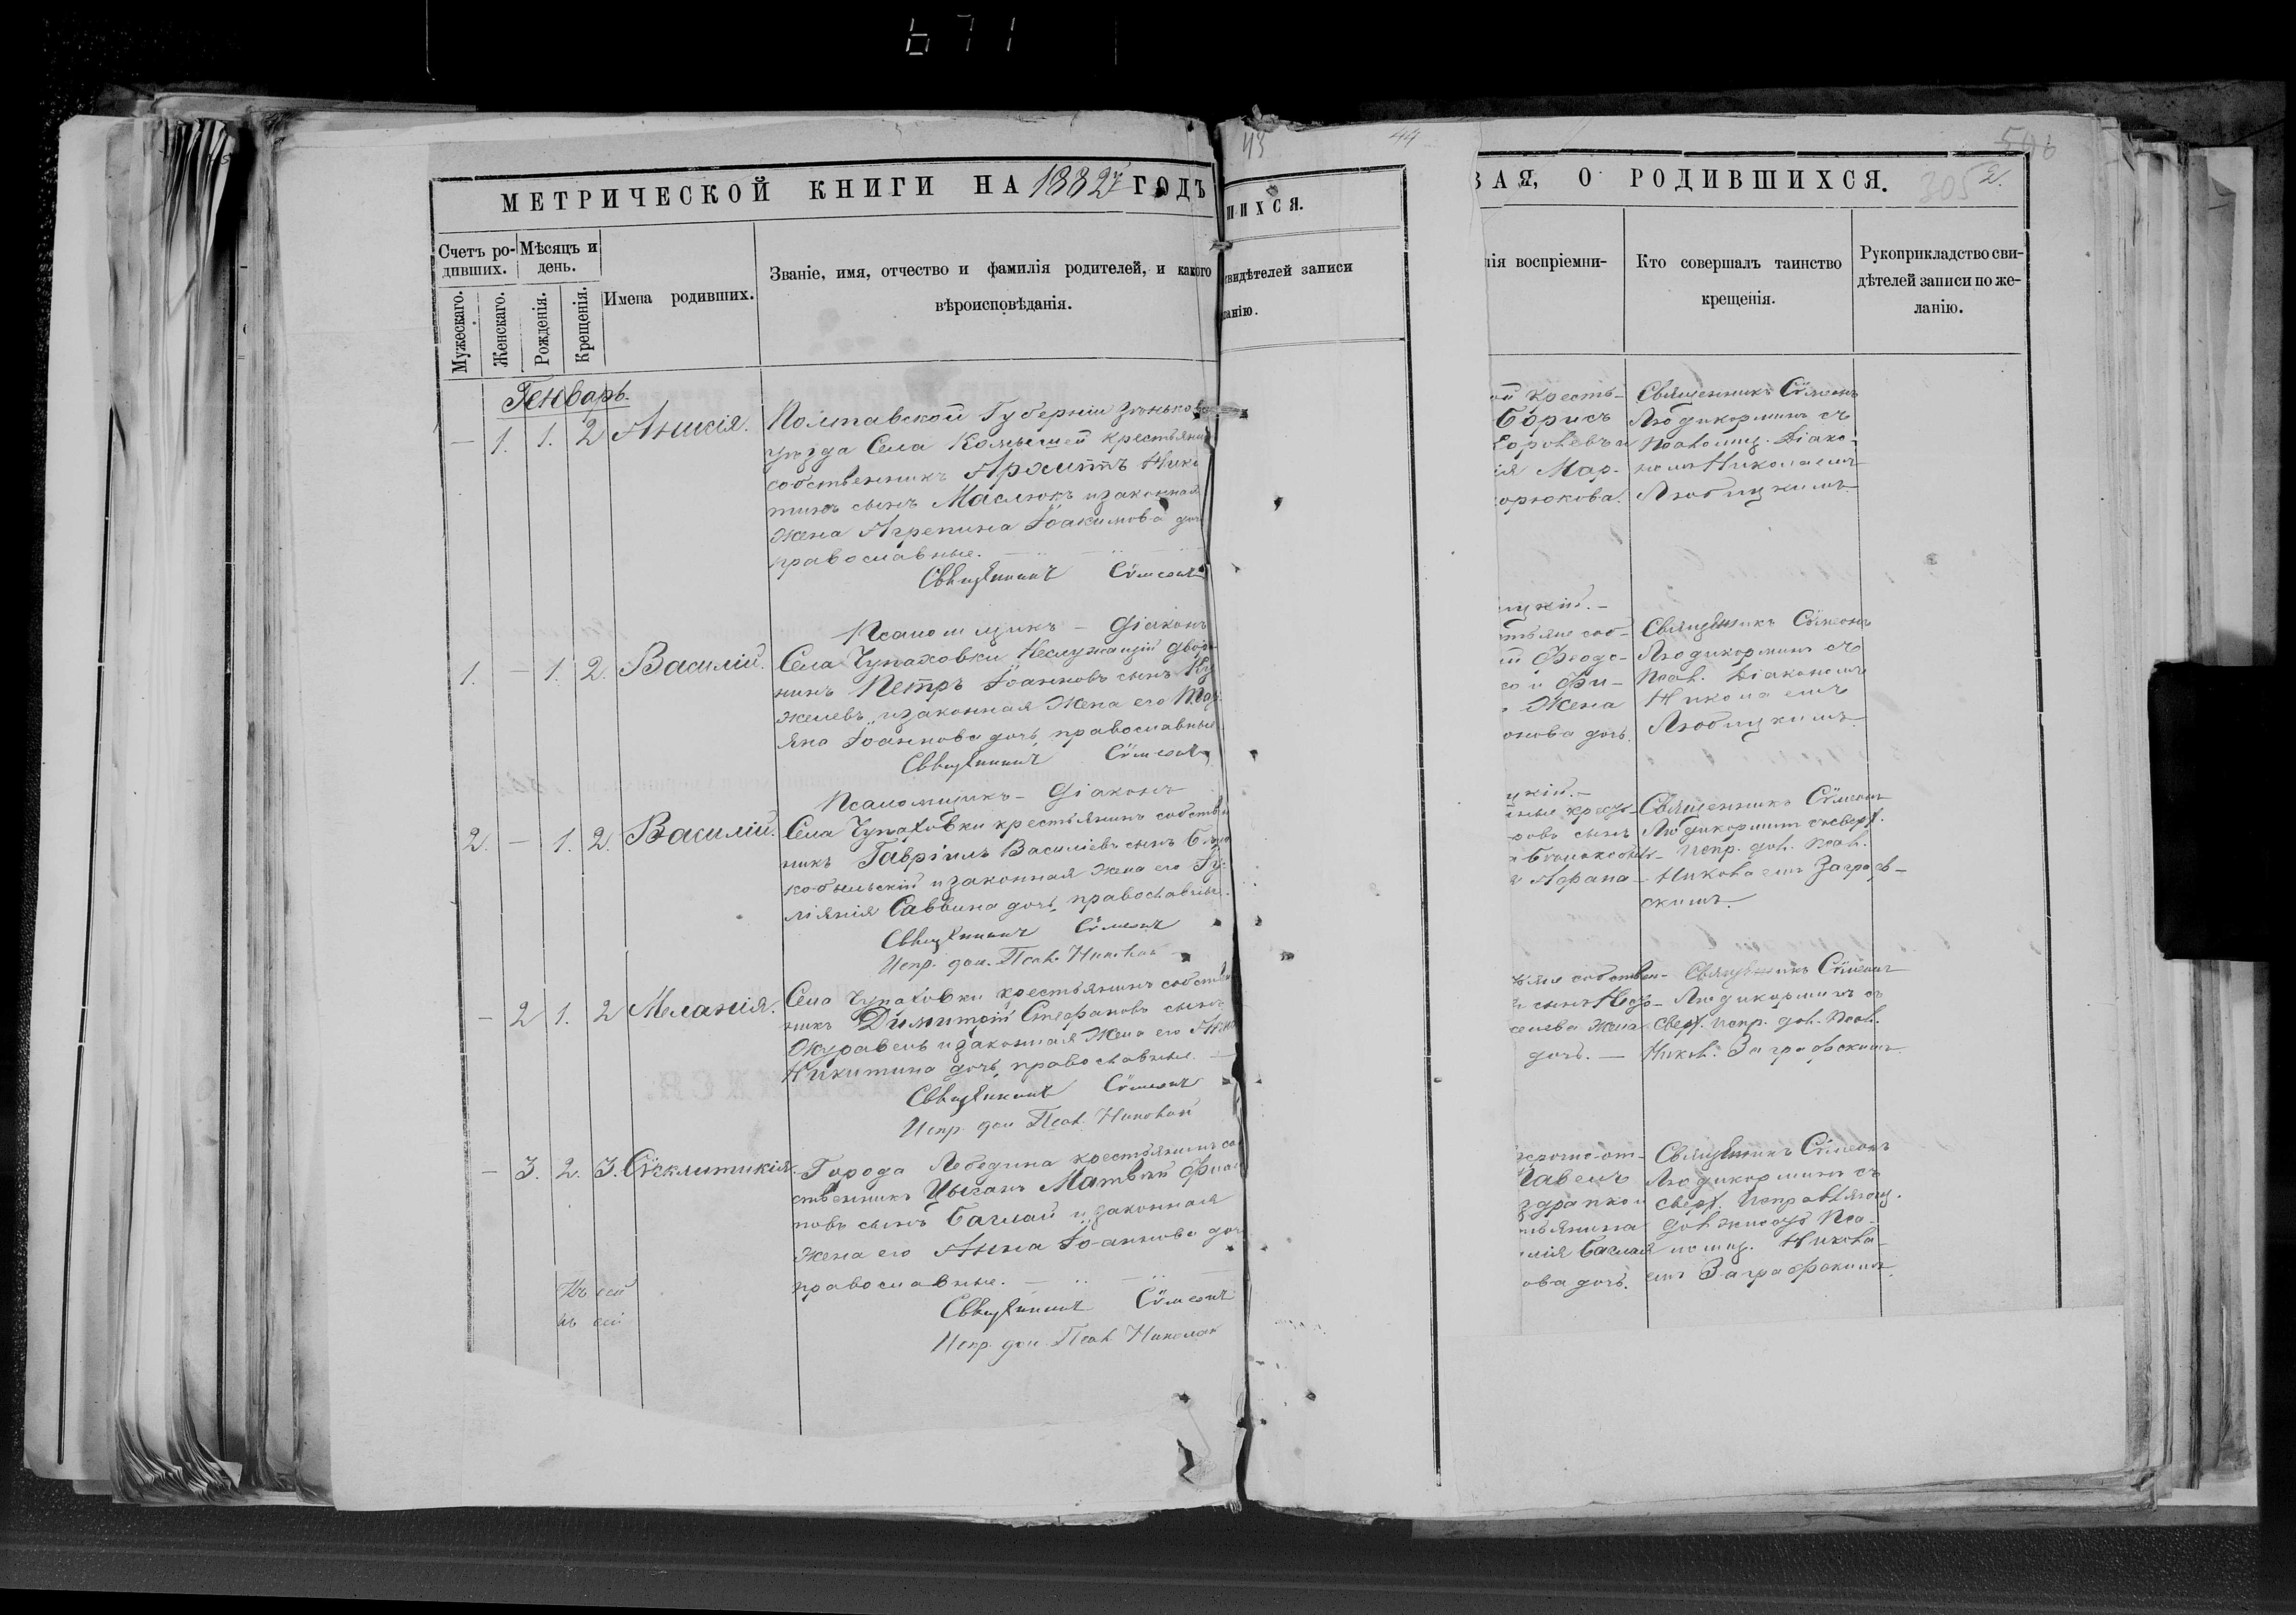 671
МЕТРИЧЕСКОЙ КНИГИ НА 1882й ГОДЪ
Счетъ ро-
дпвших.
Мѣсяцъ и
день.
Мужескаго.
Женскаго.
Рожденія.
Крещенія.
Имена родивших.
Званіе, имя, отчество и фамилія родителей, и какого
вѣроисповѣданія.
Генварь.
— 1. 1. 2 Анисія.
Полтавской Губерніи Зѣньков
уѣзда Села Комышей крестьянин
собственникъ Архиппъ Ники
тинъ сынъ Маслюкъ и законная
жена Агрепина Іоакимова доч
православные.
Священникъ Сѵмеонъ
Псаломщикъ – Діаконъ
1. — 1. 2. Василій.
Села Чупаховки Неслужащій двор
нинъ Петръ Іоанновъ сынъ
желевъ, и законная Жена его
яна Іоаннова дочь, православные
Священникъ Сѵмеонъ
Псаломщикъ – Діаконъ
2. — 1. 2. Василій.
Села Чупаховки крестьянинъ собствен
никъ Гавріилъ Василіевъ сынъ Бѣло
кобыльскій и законная жена его Іу-
ліянія Саввина дочь, православные.
Священникъ Сѵмеонъ
Испр. дол. Псал. Николай
— 2 1. 2 Меланія.
Села Чупаховки крестьянинъ собствен
никъ Димитрій Стефановъ сынъ
Журавель и законная Жена его Анна
Никитина дочь, православные.
Священникъ Сѵмеонъ
Испр. дол. Псал. Николай
— 3. 2. 3. Сѵнклитикія.
Города Лебедина крестьянинъ со
ственникъ Цыганъ Матвѣй Фила
повъ сынъ Баглай и законная
Жена его Анна Іоаннова доч
православные.
Священникъ Сѵмеонъ
Испр. дол. Псал. Николай
Къ сей
къ сей
43
44
ШИХСЯ.
свидѣтелей записи
ланію.
ВАЯ, О РОДИВШИХСЯ.
305
2.
нія воспріемни-
Кто совершалъ таинство
крещенія.
Рукоприкладство сви-
дѣтелей записи по же-
ланію.
ой кресть-
Борисъ
ія Мар-
орюкова.
Священникъ Сѵмеонъ
Людикорминъ съ
Псаломщ. Діако-
номъ Николаемъ
Любицкимъ.
цкій. –
тьяне соб-
й Феодо-
со и Фи-
Жена
онова дочь.
Священникъ Сѵмеонъ
Людикорминъ съ
Псал. Діакономъ
Николаемъ
Любицкимъ.
цкій. –
нные крест-
ровъ сынъ
Бѣлокобыль-
я Афана-
Священникъ Сѵмеонъ
Людикорминъ съ сверх.
испр. дол. псал.
Николаемъ Заграф-
скимъ.
ьяне собствен-
ъ сынъ Недо-
сеева жена
дочь. —
Священникъ Сѵмеонъ
Людикорминъ съ
сверх. испр. дол. псал.
Никол. Заграфскимъ.
Павелъ
здрапкои
тьянина
илія Баглая
ова дочь.
Священникъ Сѵмеонъ
Людикорминъ съ
сверх. исправляющ.
должность Пса-
ломщ. Никола-
емъ Заграфскимъ.